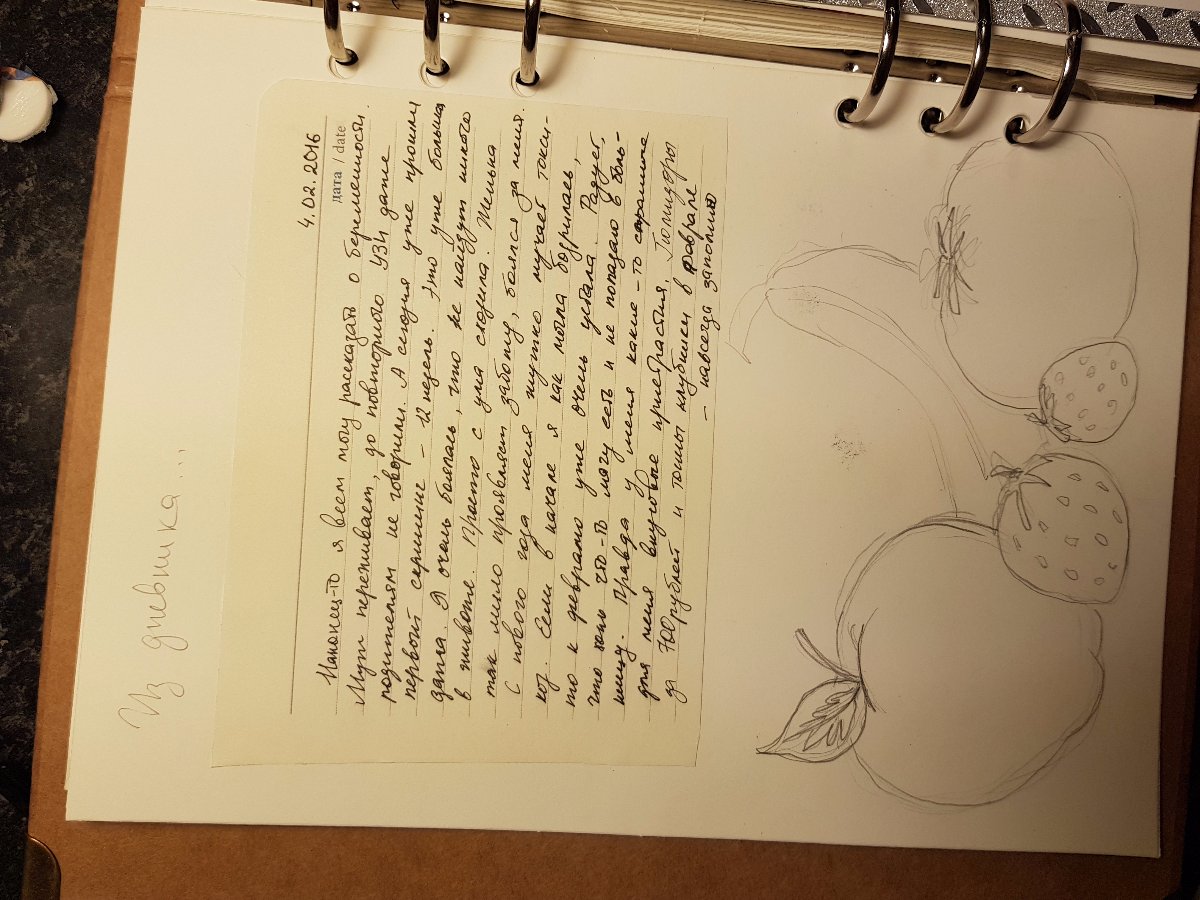 Из дневника...
4.02.2016
дата / date
Наконец-то я всем могу рассказать о беременности.
Муж переживает, до повторного УЗИ даже
родителям не говорили. А сегодня уже прошли
первый скрининг - 12 недель. Это уже большая
дата. Я очень боялась, что не найдут никого
в животе. Просто с ума сходила. Женька
так мило проявляет заботу, боялся за меня.
С нового года меня жутко мучает токси-
коз. Если в начале я как могла бодрилась,
то к февралю уже очень устала. Радует,
что хоть что-то могу есть и не попадаю в боль-
ницу. Правда у меня какие-то странные
для меня вкусовые пристрастия. Помидоры
за 700рублей и тонны клубники в феврале
- навсегда запомню